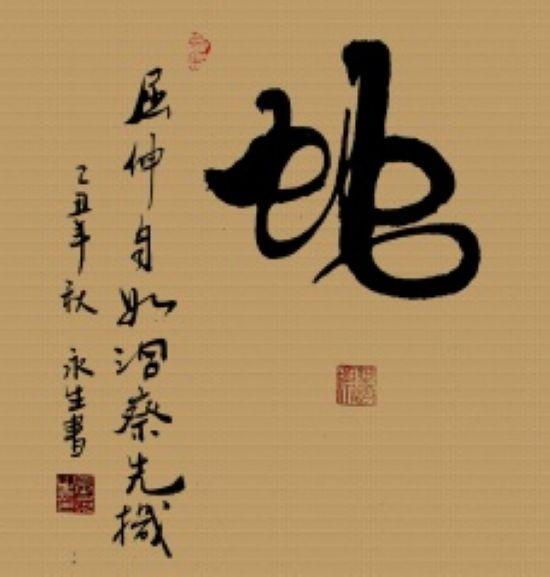 蛇
屈伸自如洞察先機
己丑年秋 永生書